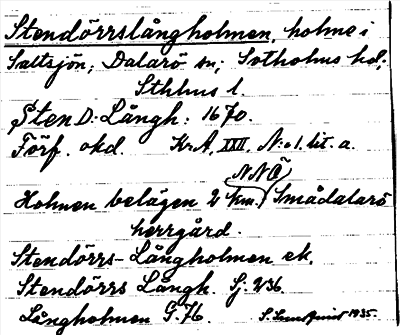 Stendörrslångholmen, holme i
Saltsjön; Dalarö sn; Sotholms hd;
Sthlms l.
Sten D: Långh: 1670.
Förf. okd. Kr. A, XXII, N:o 1. lit. a.
NNÖ
Holmen belägen 2 km. Smådalarö
herrgård.
Stendörrs-Långholmen ek.
Stendörrs Långh. Sj: 236
Långholmen G.H.
1935.